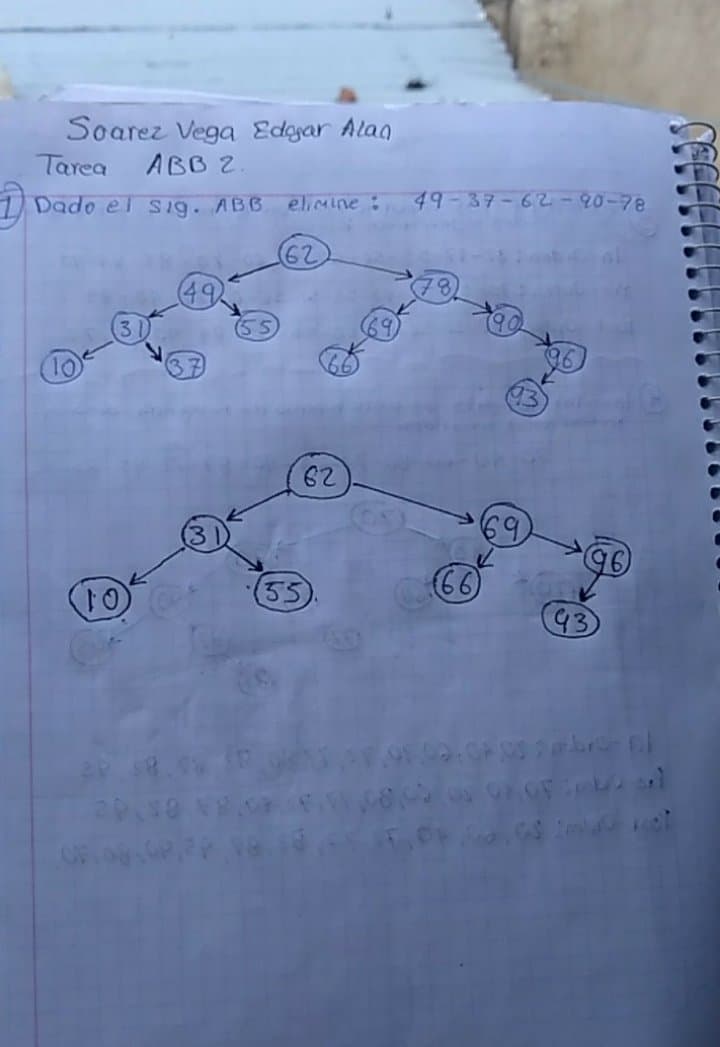 Soarez Vega Edgar Alan
Tarea ABB 2.
1) Dado el sig. ABB elimine: 49-37-62-90-78
62
49 78
31 55 69 90
10 37 66 96
93
62
31 69
10 55 66 96
93